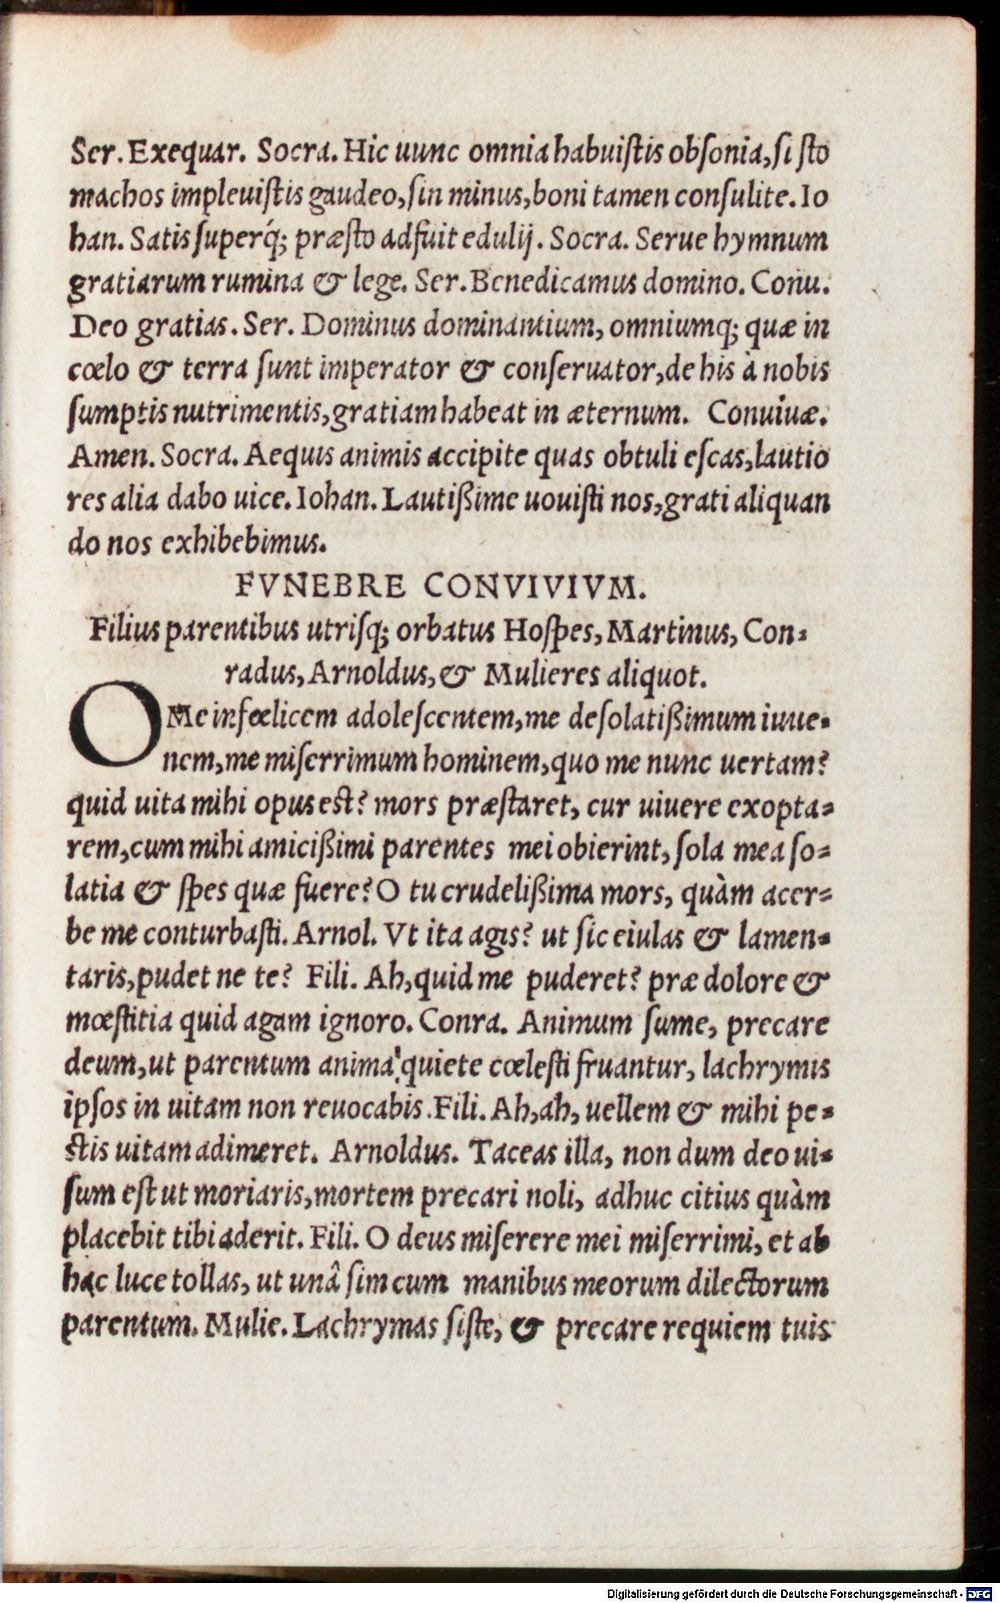 Ser. Exequar. Socra. Hic uunc omnia habuiſtis obſonia, ſi ſto
machos impleuiſtis gaudeo, ſin minus, boni tamen conſulite. Io
han. Satis ſuperq́; præſto adfuit edulij. Socra. Serue hymnum
gratiarum rumina & lege. Ser. Benedicamus domino. Conu.
Deo gratias. Ser. Dominus dominantium, omniumq; quæ in
cœlo & terra ſunt imperator & conſeruator, de his à nobis
ſumptis nutrimentis, gratiam habeat in æternum. Conuiuæ.
Amen. Socra. Aequis animis accipite quas obtuli eſcas, lautio
res alia dabo uice. Iohan. Lautißime uouiſti nos, grati aliquan
do nos exhibebimus.
FVNEBRE CONVIVIVM.
Filius parentibus utriſq; orbatus Hoſpes, Martinus, Con-
radus, Arnoldus, & Mulieres aliquot.
O Me infœlicem adoleſcentem, me deſolatißimum iuue-
nem, me miſerrimum hominem, quo me nunc uertam?
quid uita mihi opus est? mors præſtaret, cur uiuere exopta-
rem, cum mihi amicißimi parentes mei obierint, ſola mea ſo-
latia & ſpes quæ fuere? O tu crudelißima mors, quàm acer-
be me conturbaſti. Arnol. Vt ita agis? ut ſic eiulas & lamen-
taris, pudet ne te? Fili. Ah, quid me puderet? præ dolore &
mœſtitia quid agam ignoro. Conra. Animum ſume, precare
deum, ut parentum animæ quiete cœleſti fruantur, lachrymis
ipſos in uitam non reuocabis. Fili. Ah, ah, uellem & mihi pe-
ctis uitam adimeret. Arnoldus. Taceas illa, non dum deo ui-
ſum est ut moriaris, mortem precari noli, adhuc citius quàm
placebit tibi aderit. Fili. O deus miſerere mei miſerrimi, et ab
hac luce tollas, ut unâ ſim cum manibus meorum dilectorum
parentum. Mulie. Lachrymas ſiſte, & precare requiem tuis
Digitalisierung gefördert durch die Deutsche Forschungsgemeinschaft - DFG